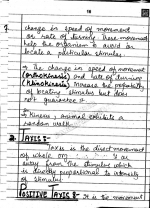 change in speed of movement
or rate of turning. These movement
help the organism to avoid or
locate a particular stimulus.
→ The change in speed of movement
(orthokinesis) and rate of turning
(klinokinesis) increase the probability
of locating stimulus but does
not guarantee it.
→ In Kinesis, animal exhibits a
random walk.
2. TAXIS:-
Taxis is the direct movement
of whole
away from the stimulus which
is directly proportional to intensity
of stimulus.
POSITIVE TAXIS:- It is the movement